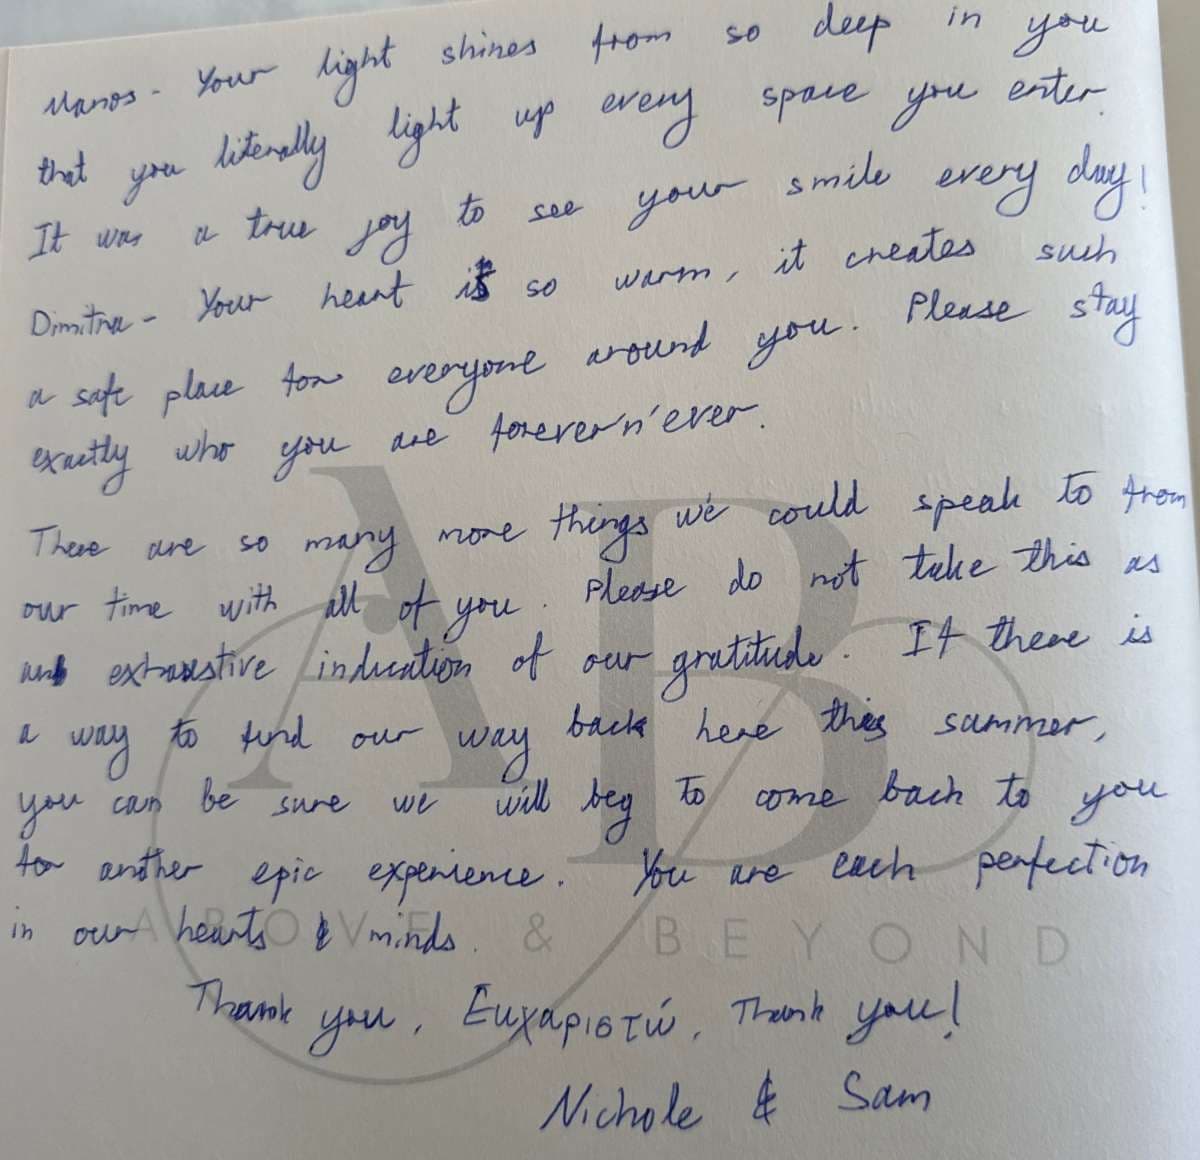 Manos - Your light shines from so deep in you
that you literally light up every space you enter.
It was a true joy to see your smile every day!
Dimitra - Your heart is so warm, it creates such
a safe place for everyone around you. Please stay
exactly who you are forever n' ever.
There are so many more things we could speak to from
our time with all of you. Please do not take this as
an exhaustive indication of our gratitude. If there is
a way to find our way back here this summer,
you can be sure we will beg to come back to you
for another epic experience. You are each perfection
in our hearts & minds.
AB
ABOVE & BEYOND
Thank you, Ευχαριστώ, Thank you!
Nichole & Sam